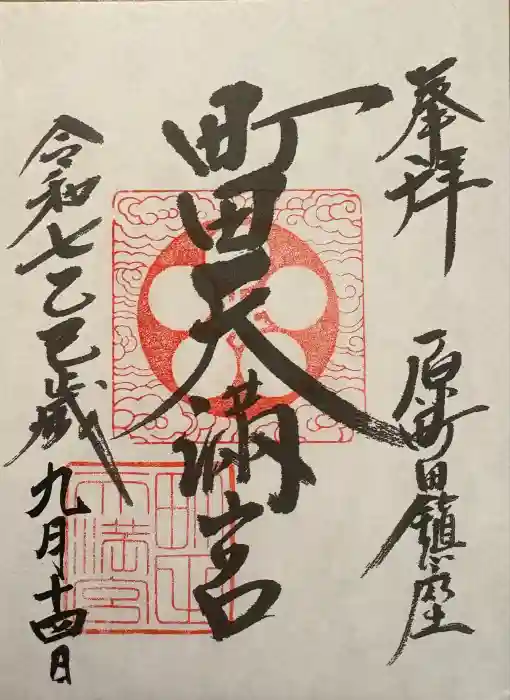 奉拝
原町田鎮座
町田天満宮
令和七乙巳歳九月十四日
町田天満宮